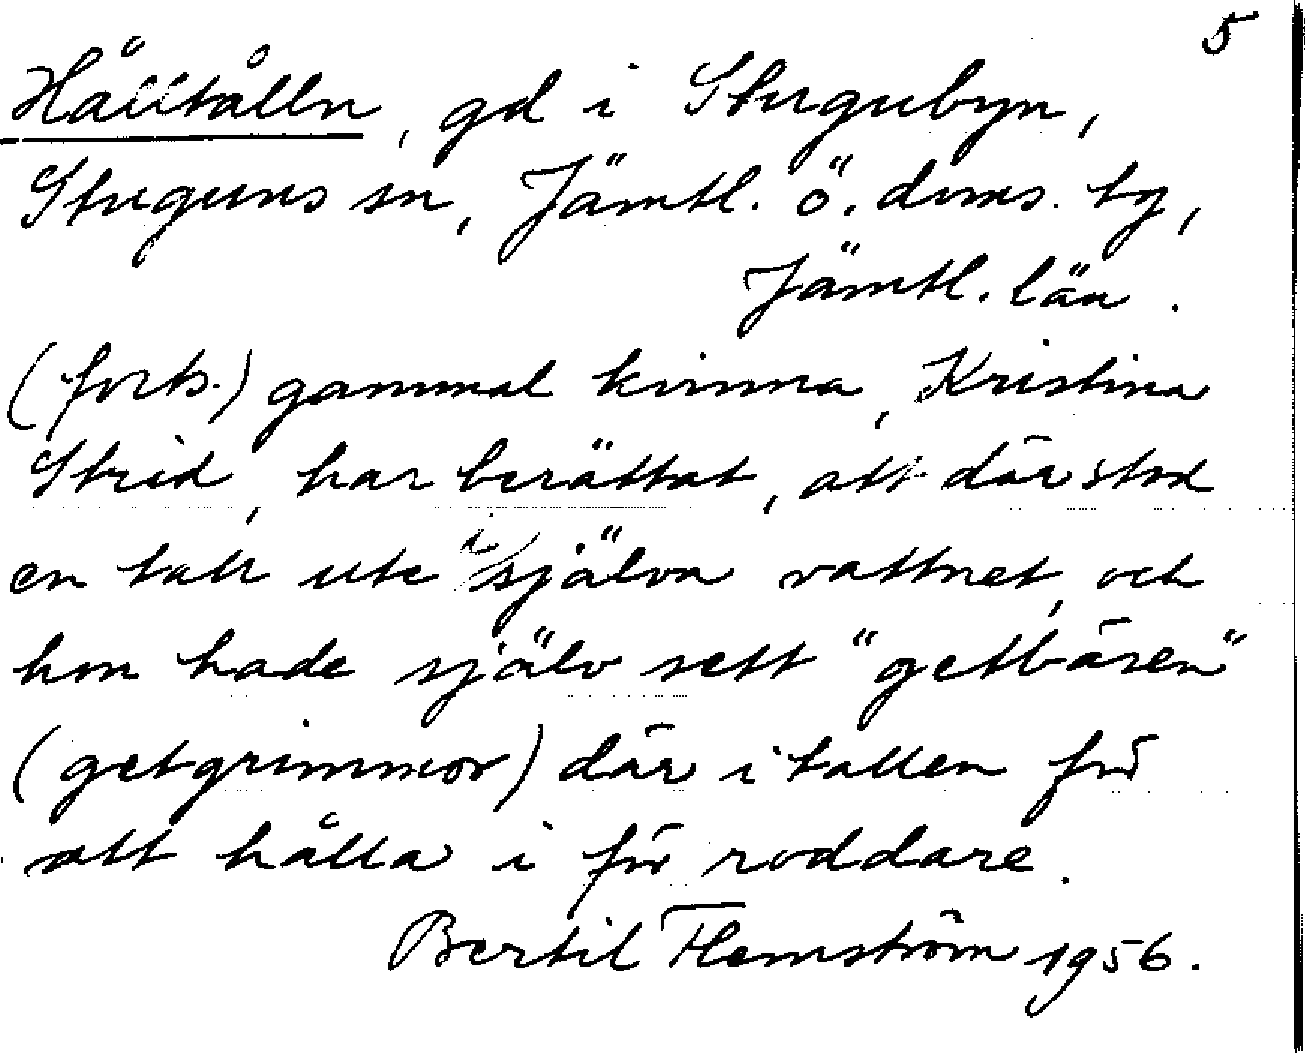 5
Hålltålln, gd i Stugubyn,
Stuguns sn, Jämtl. ö. doms. tg,
Jämtl. län.
(forts.) gammal kvinna, Kristina
Strid, har berättat, att där stod
en tall ute i själva vattnet, och
hon hade själv sett "getbåsen"
(getgrimmor) där i tallen för
att hålla i för roddare.
Bertil Flemström 1956.